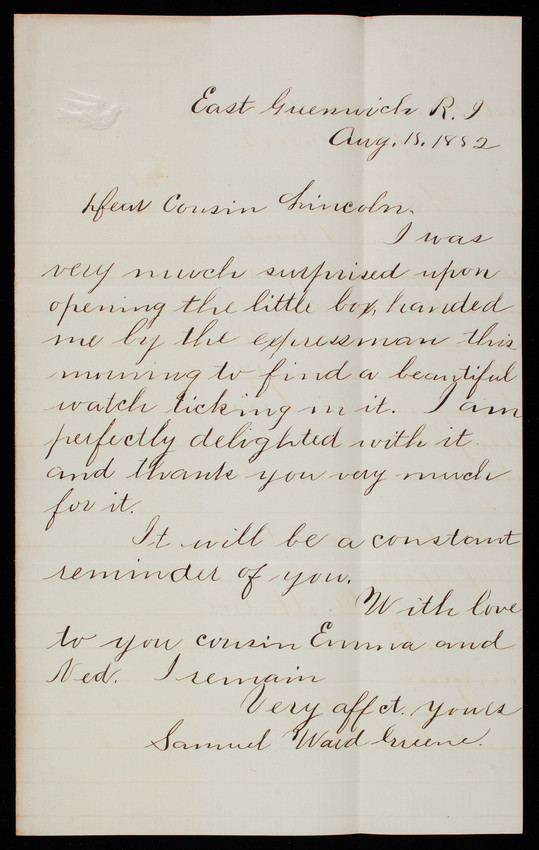 East Greenwich R. I
Aug. 15. 1882
Dear Cousin Lincoln.
I was
very much surprised upon
opening the little box, handed
me by the expressman this
morning to find a beautiful
watch ticking in it. I am
perfectly delighted with it
and thank you very much
for it.
It will be a constant
reminder of you.
With love
to you cousin Emma and
Ned. I remain
Very affct. yours
Samuel Ward Greene.